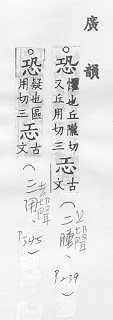 廣韻
○恐
懼也丘隴切
又丘用切三
古
文
(二腫、上聲
P.239)
○恐
疑也區
用切三
古
文
(二用、去聲
P.345)